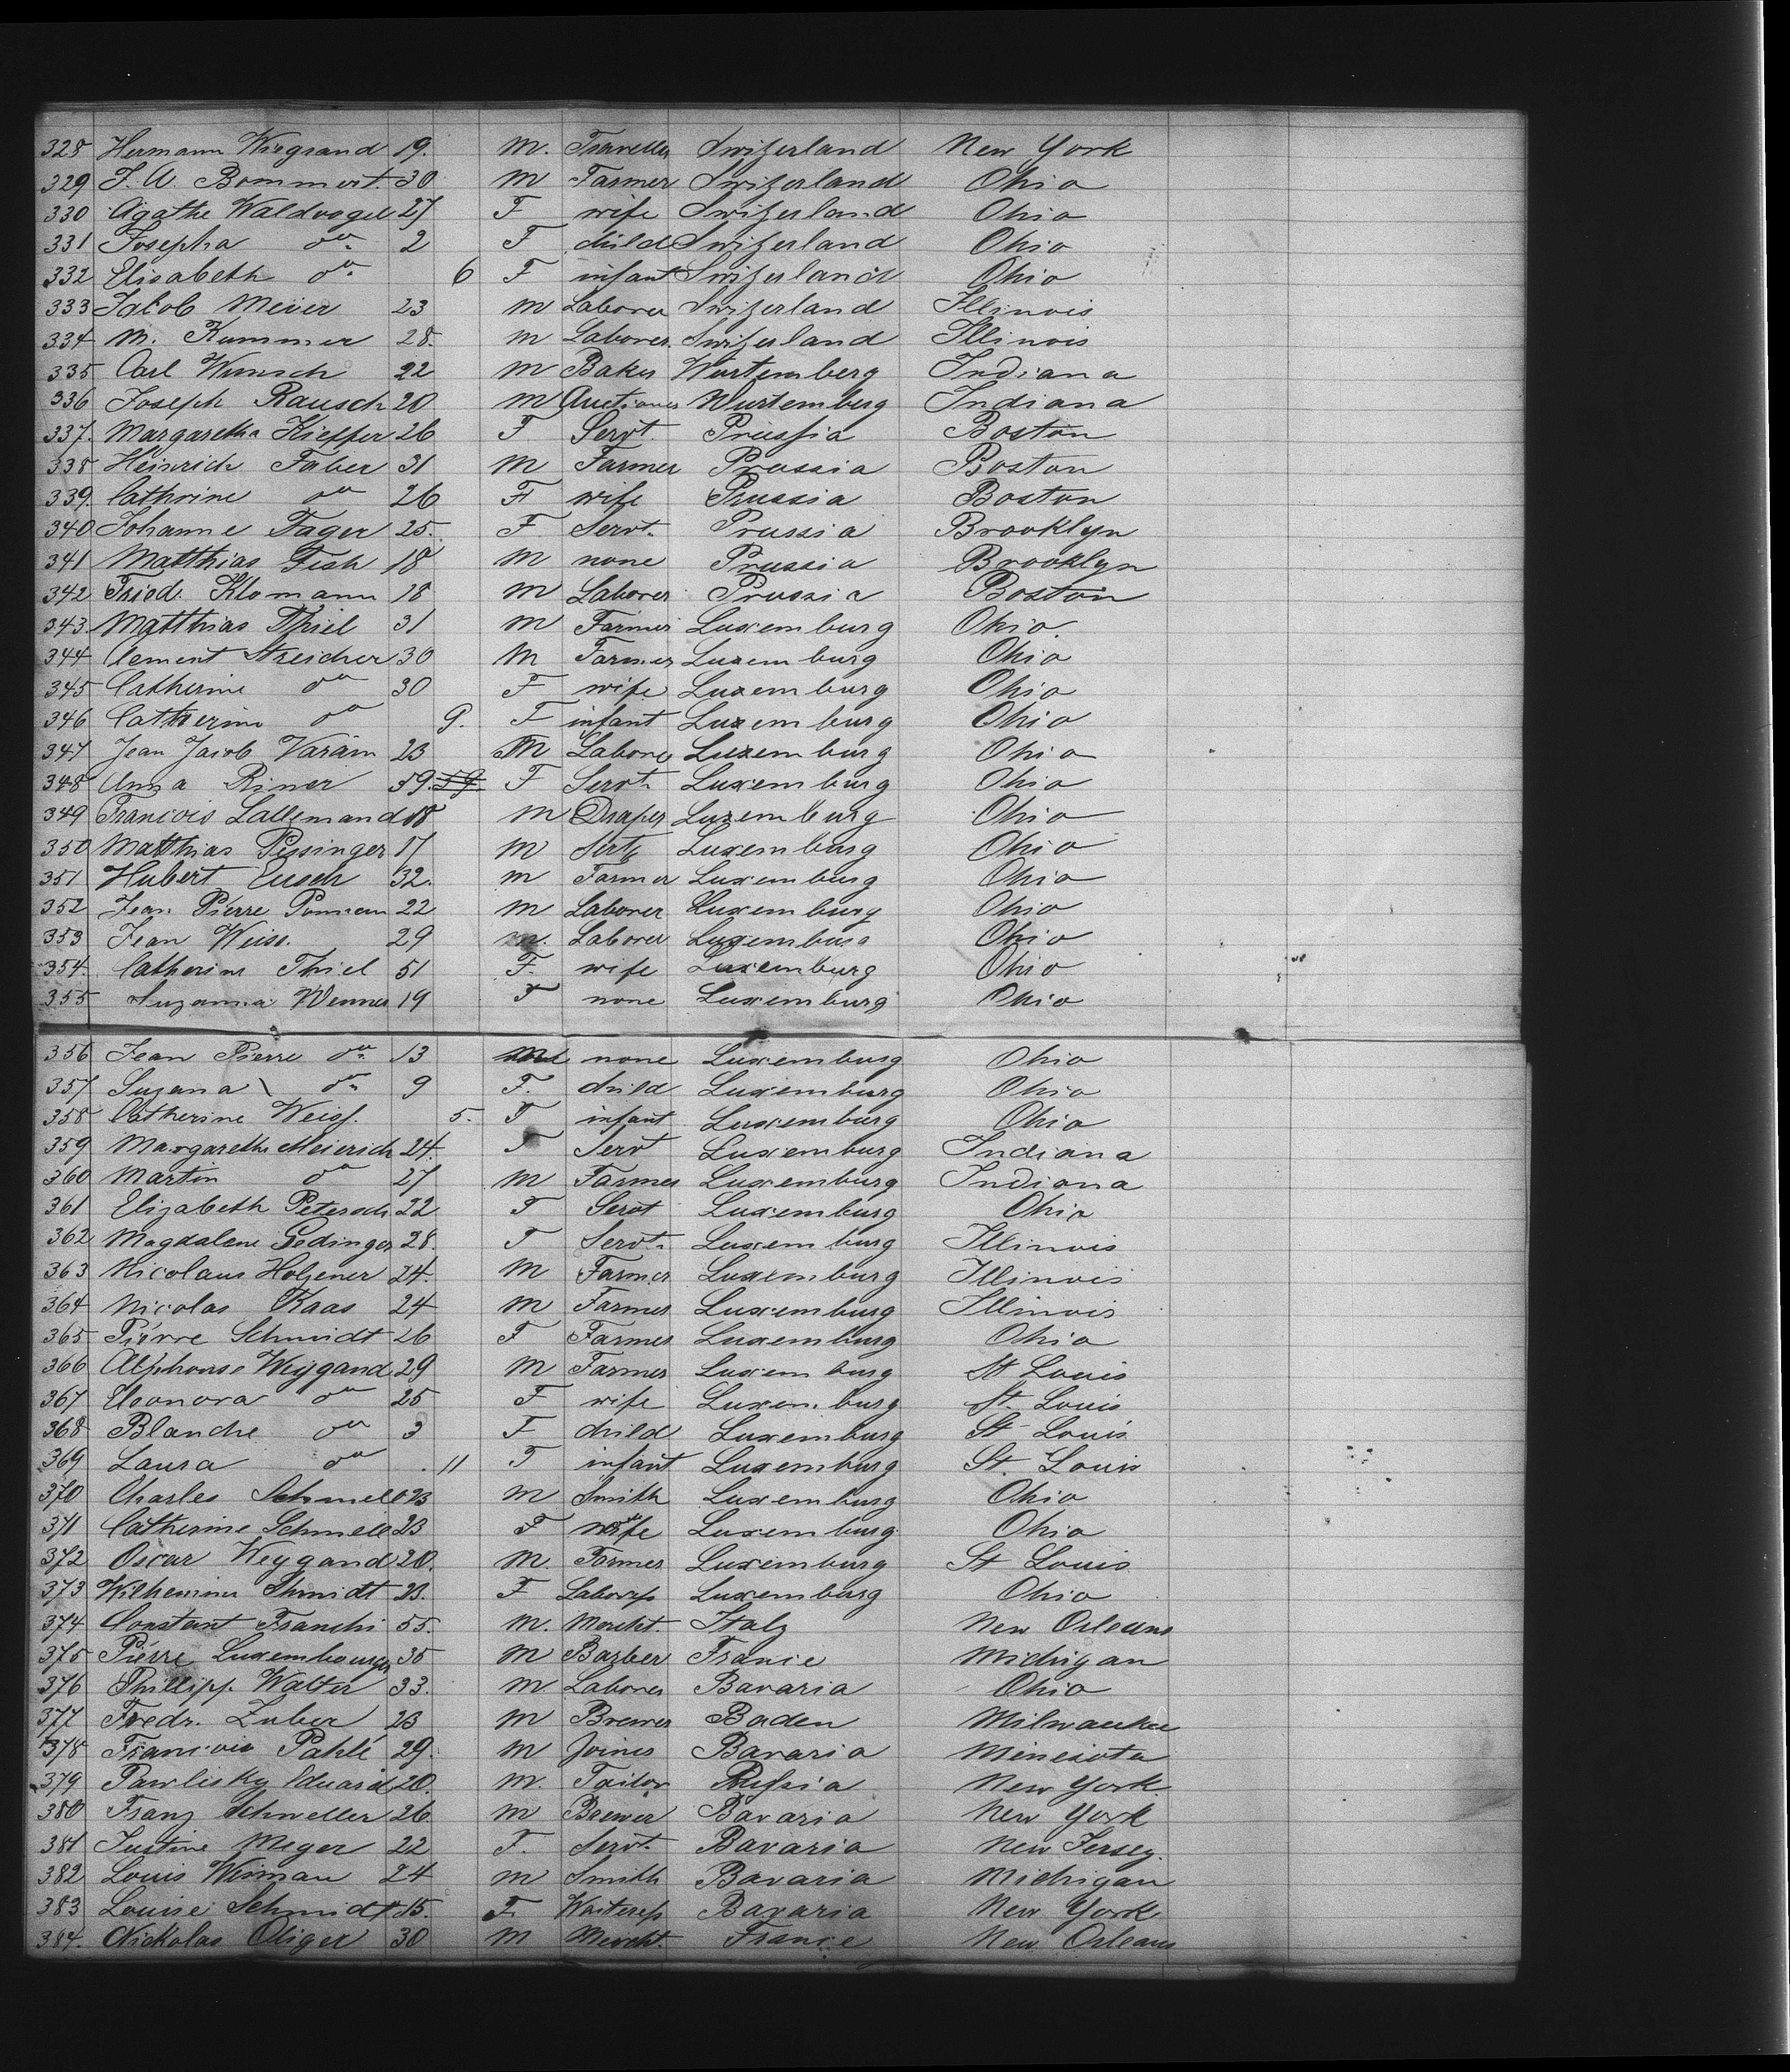 328 Hermann Wiegrand 19. M. Traveller Switzerland New York
329 J. A. Bommert 30 M Farmer Switzerland Ohio
330 Agathe Waldvogel 27 F wife Switzerland Ohio
331 Josepha do. 2 F child Switzerland Ohio
332 Elisabeth do. 6 F infant Switzerland Ohio
333 Jacob Meier 23 M Laborer Switzerland Illinois
334 M. Kummer 28. M Laborer. Switzerland Illinois
335 Carl Wunsch 22 M Baker Wurtemberg Indiana
336 Joseph Rausch 20 M Wurtemberg Indiana
337. Margaretha Kieffer 26 F Servt. Prussia Boston
338 Heinrich Faber 31 M Farmer Prussia Boston
339. Cathrine do 26 F wife Prussia Boston
340 Johanne Fager 25. F Servt. Prussia Brooklyn
341 Matthias Fish 18 M none Prussia Brooklyn
342 Fried. Klomann 18 M Laborer Prussia Boston
343. Matthias Thiel 31 M Farmer Luxemburg Ohio
344 Clement Streicher 30 M Farmer Luxemburg Ohio
345 Catherine do 30 F wife Luxemburg Ohio
346 Catherine do 9. F infant Luxemburg Ohio
347 Jean Jacob 23 M Laborer Luxemburg Ohio
348 Anna Rimer 39. F Servt. Luxemburg Ohio
349 Francois Lallemand 18 M Draper Luxemburg Ohio
350 Matthias Pessinger 17 M Luxemburg Ohio
351 Hubert Eusch 32. M Farmer Luxemburg Ohio
352 Jean Pierre 22 M Laborer Luxemburg Ohio
353 Jean Weiss. 29 M. Laborer Luxemburg Ohio
354. Catherine Thiel 51 F. wife Luxemburg Ohio
355 Suzanna Wenner 19 F none Luxemburg Ohio
356 Jean Pierre do. 13 M none Luxemburg Ohio
357 Suzana do. 9 F. child Luxemburg Ohio
358 Catherine Weiss. 5. F infant Luxemburg Ohio
359 Margarethe Meierich 24. F Servt Luxemburg Indiana
360 Martin do 27 M Farmer Luxemburg Indiana
361 Elizabeth Petersch 22 F Servt Luxemburg Ohio
362 Magdalene Gedinger 28. F Servt. Luxemburg Illinois
363 Nicolaus Holzener 24. M Farmer Luxemburg Illinois
364 Nicolas Kaas 24 M Farmer Luxemburg Illinois
365 Pierre Schmidt 26 F Farmer Luxemburg Ohio
366 Alphonse Weygand 29 M Farmer Luxemburg St Louis
367 Eleonora do 25 F wife Luxemburg St. Louis
368 Blanche do 3 F child Luxemburg St Louis
369 Laura do 11 F infant Luxemburg St. Louis
370 Charles Schmell 23 M Smith Luxemburg Ohio
371 Catherine Schmell 23 F wife Luxemburg Ohio
372 Oscar Weygand 20. M. Farmer Luxemburg St Louis
373 Wilhemina Shmidt 23. F Luxemburg Ohio
374 Constant Franchi 55. M. Mercht. Italy New Orleans
375 Pierre Luxembourger 35 M Barber France Michigan
376 Phillipp Walter 33. M Laborer Bavaria Ohio
377 Fredr. Zuber 23 M Brewer Baden Milwaukee
378 Francois Pahlé 29. M Joiner Bavaria Minesota
379 Pawlisky Eduard 20. M. Tailor Russia New York.
380 Franz Schweller 26. M Brewer Bavaria New York
381 Justine Meger 22 F. Servt. Bavaria New Jersey.
382 Louis Weiman 24 M Smith Bavaria Michigan
383 Louise Schmidt 15. F. Waitress Bavaria New York
384. Nickolas Oliger 30 M Mercht. France New Orleans